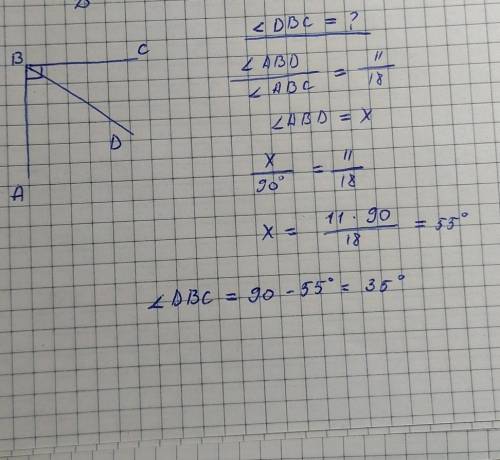 ∠DBC = ?
∠ABD / ∠ABC = 11 / 18
∠ABD = x
x / 90° = 11 / 18
x = 11 · 90 / 18 = 55°
∠DBC = 90 - 55° = 35°
B
C
D
A